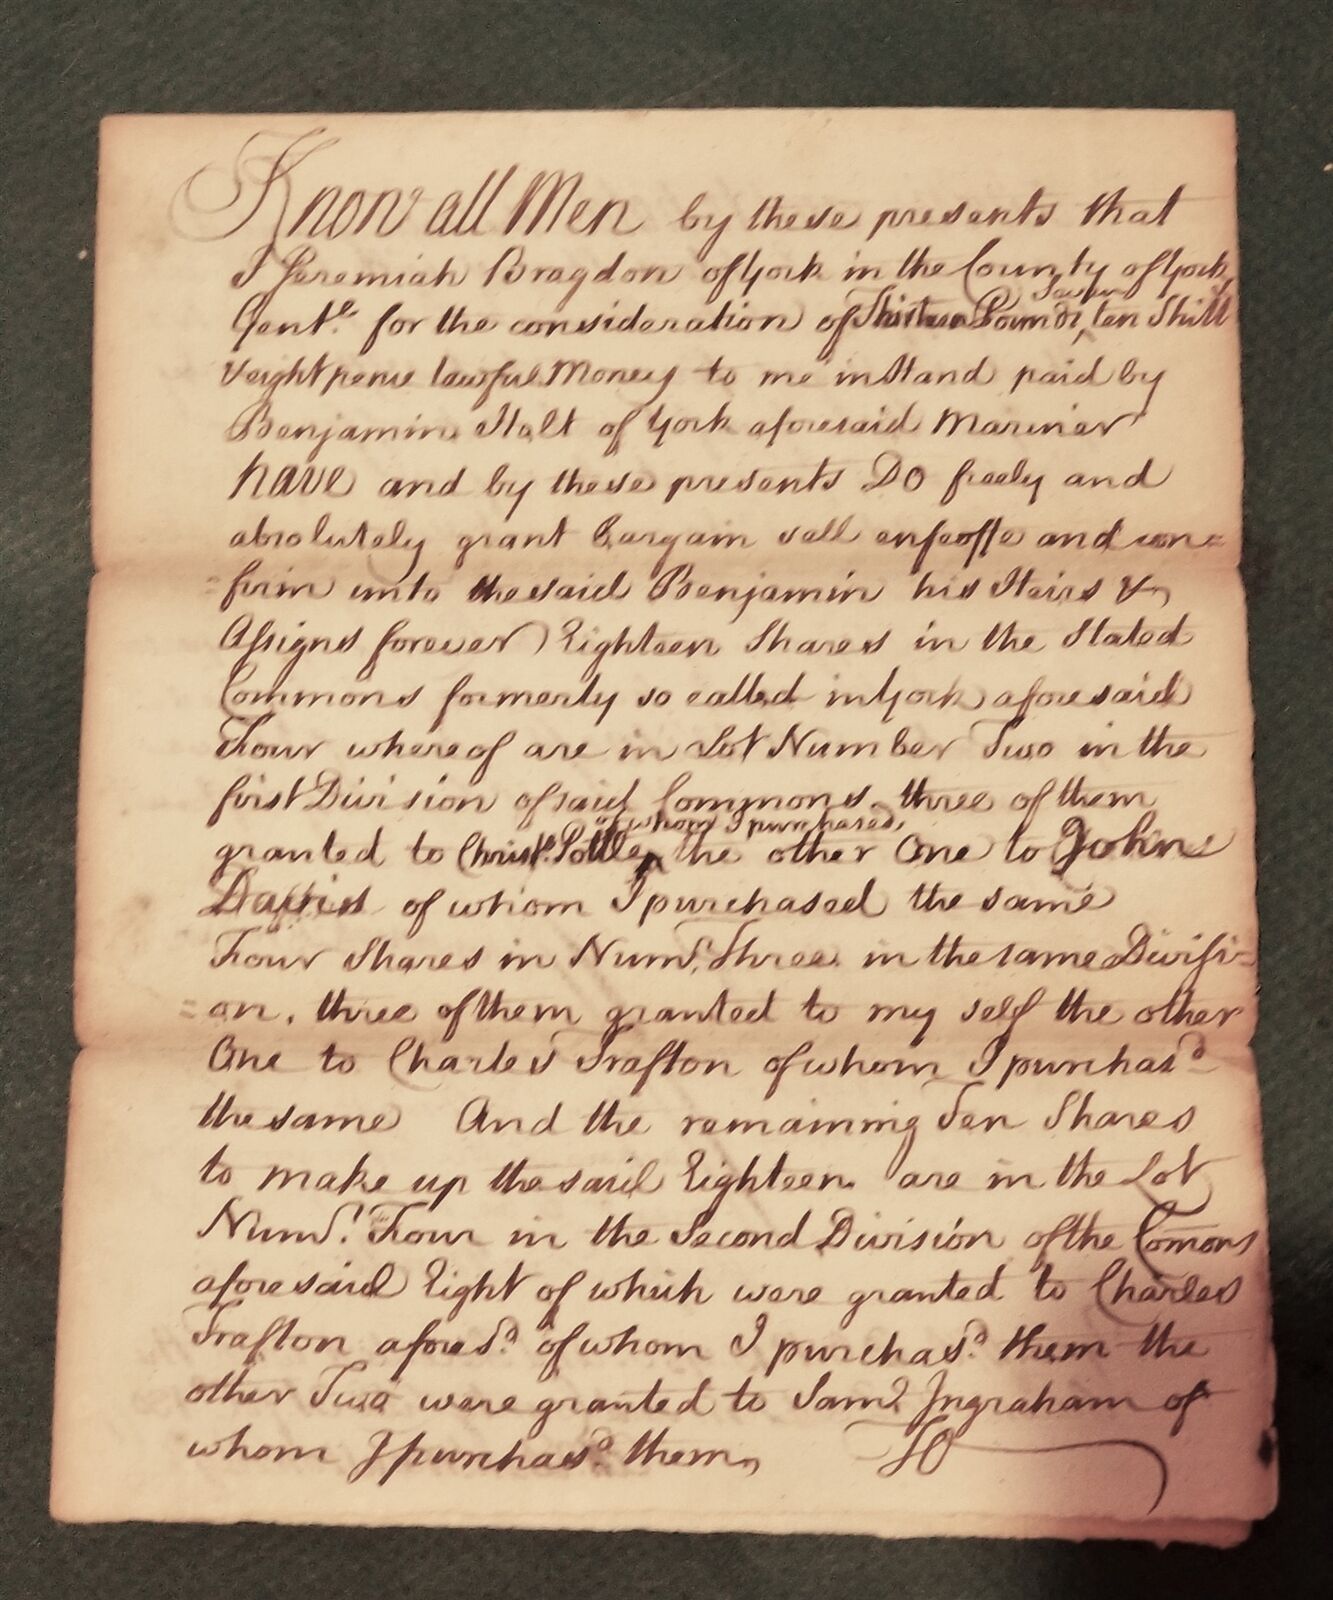 Know all Men by these presents that
I Jeremiah Bragdon of York in the County of York
Gentn. for the consideration of Thirteen Pounds, ten Shill
& eight pence lawful Money to me in Hand paid by
Benjamin Holt of York aforesaid Mariner
have and by these presents Do freely and
absolutely grant bargain sell enfeoffe and con=
=firm unto the said Benjamin his Heirs &
Assigns forever Eighteen Shares in the Stated
Commons formerly so called in York aforesaid
Four whereof are in Lot Number Two in the
first Division of said Commons, three of them
of whom I purchased,
granted to Christr. Pottle ^ the other One to John
Davis of whom I purchased the same
Four Shares in Numbr. Three in the same Divisi=
=on, three of them granted to my self the other
One to Charles Trafton of whom I purchasd
the same And the remaining Ten Shares
to make up the said Eighteen are in the Lot
Numbr. Four in the Second Division of the Comons
aforesaid Eight of which were granted to Charles
Trafton aforesd. of whom I purchasd. them the
other Two were granted to Saml. Ingraham of
whom I purchasd. them,  To